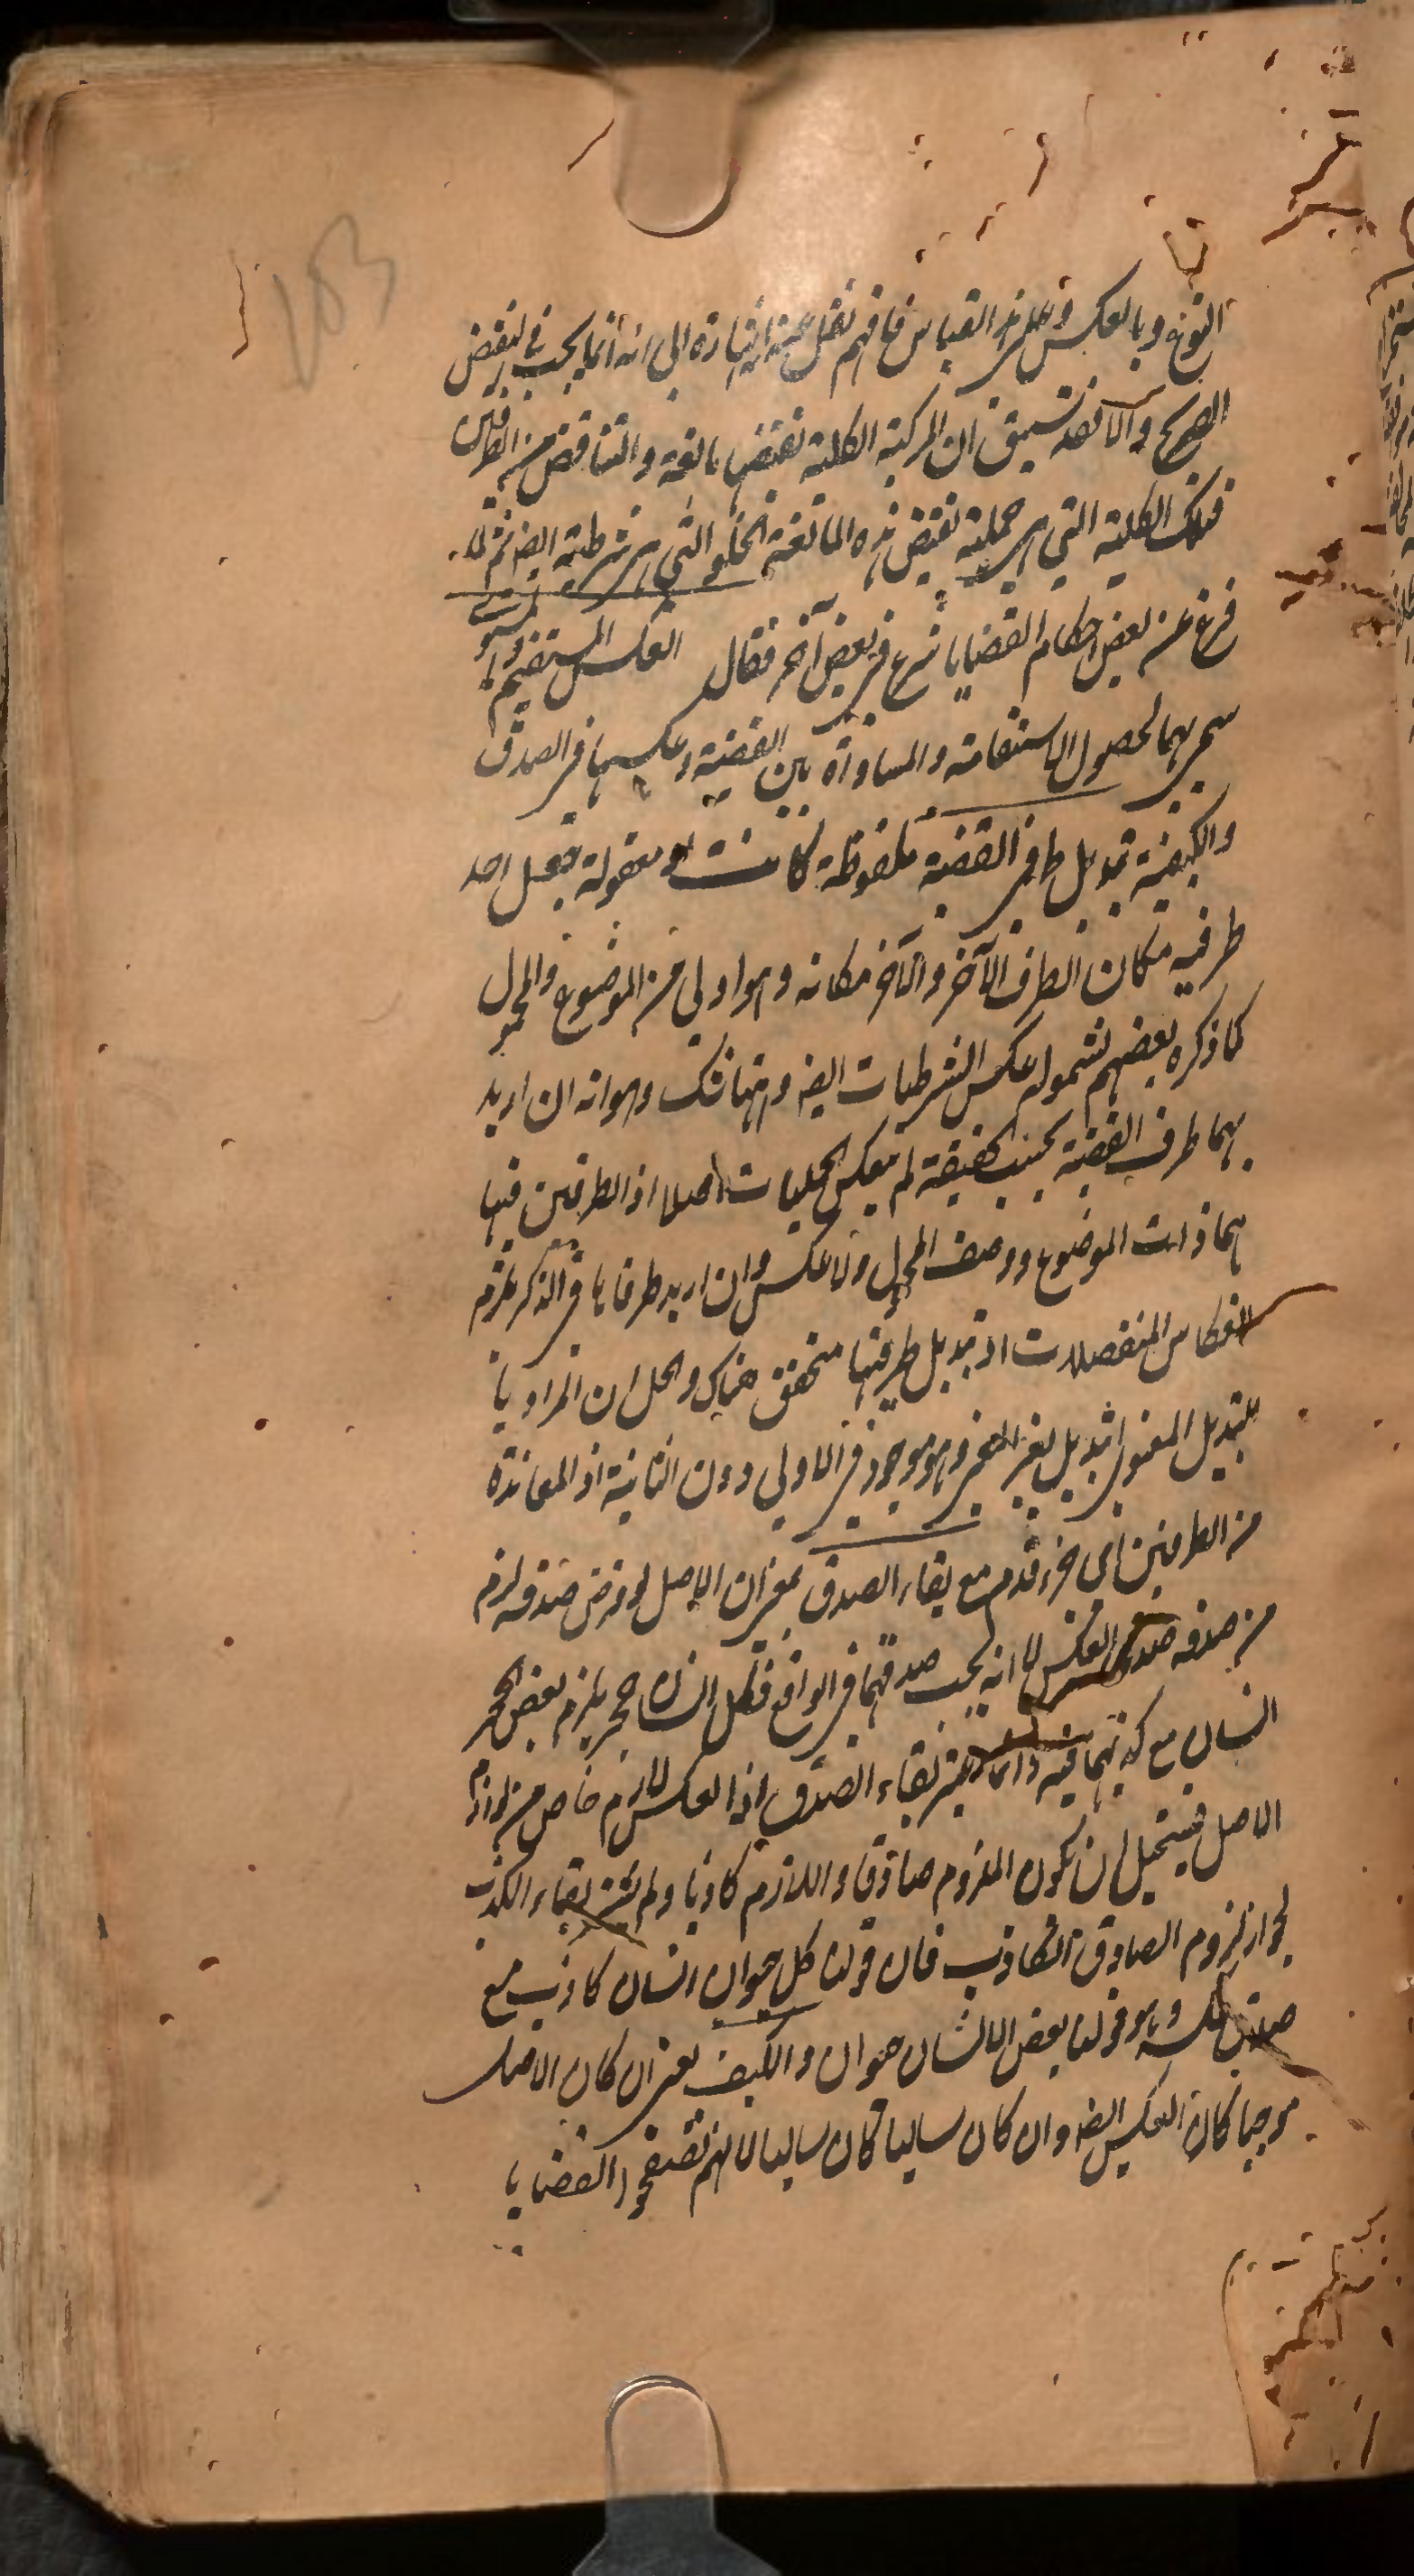 183
النوع وبالعكس وعلى هذا القياس فافهم نقل عنه اشارة الى انه انما يجب في النقيض
الصريح والا فقد سبق ان المركبة الكلية نقيضها مانعة والتناقض من الطرفين
فتلك الكلية التي هي حملية نقيض هذه المانعة الخلو التي هي شرطية ايضا ثم لما
فرغ عن بعض احكام القضايا شرع في بعض آخر فقال العكس المستقيم والمستوى
سمي بهما لحصول الاستقامة والمساواة بين القضية وعكسها في الصدق
والكيفية تبديل طرفي القضية ملفوظة كانت او معقولة بجعل احد
طرفيه مكان الطرف الآخر والآخر مكانه وهو اولى من الموضوع والمحمول
كما ذكره بعضهم لشموله عكس الشرطيات ايضا وههنا شك وهو انه ان اريد
بهما طرف القضية بحسب الحقيقة لم تنعكس الحمليات اصلا اذ الطرفين فيها
هما ذات الموضوع ووصف المحمول ولا عكس وان اريد طرفاها في الذكر يلزم
انعكاس المنفصلات اذ تبديل طرفيها متحقق هناك والحل ان المراد با
لتبديل المعنوي اي تبديل يغير المعنى وهو موجود في الاولى دون الثانية اذ المعاندة
من الطرفين اي جزء قدم مع بقاء الصدق بمعنى ان الاصل لو فرض صدقه لزم
من صدقه صدق العكس لا انه يجب صدقهما في الواقع فكل انسان حجر يلزم بعض الحجر
انسان مع كذبهما فيه وانما يعتبر بقاء الصدق اذ العكس لازم خاص من لوازم
الاصل فيستحيل ان يكون الملزوم صادقا واللازم كاذبا ولم يعتبر بقاء الكذب
لجواز لزوم الصادق الكاذب فان قولنا كل حيوان انسان كاذب مع
صدق عكسه وهو قولنا بعض الانسان حيوان والكيف يعني ان كان الاصل
موجبا كان العكس ايضا وان كان سالبا كان سالبا لانهم تصفحوا القضايا